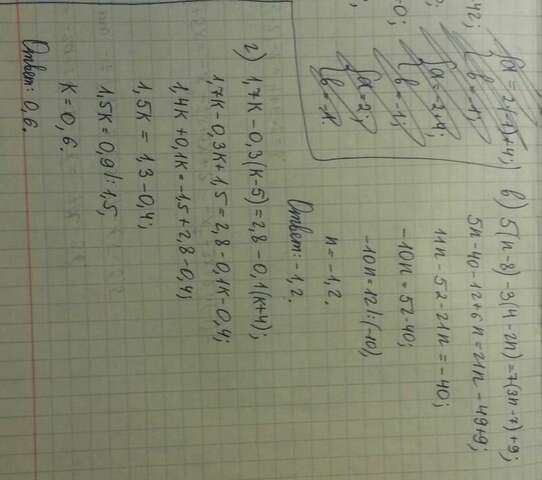 42;
=0;
{a = 2·(-1)+4;
{b = -1;
{a = -2+4;
{b = -1;
{a = 2;
{b = -1.
в) 5(n-8)-3(4-2n)=7(3n-7)+9;
5n-40-12+6n=21n-49+9;
11n-52-21n=-40;
-10n=52-40;
-10n=12 |:(-10);
n=-1,2.
Ответ: -1,2.
г) 1,7k-0,3(k-5)=2,8-0,1(k+4);
1,7k-0,3k+1,5=2,8-0,1k-0,4;
1,4k+0,1k=-1,5+2,8-0,4;
1,5k=1,3-0,4;
1,5k=0,9 |:1,5;
k=0,6.
Ответ: 0,6.